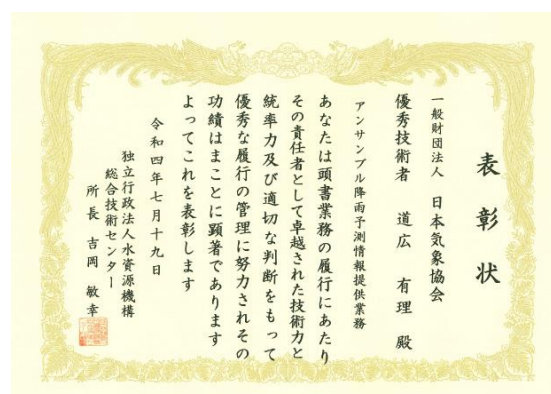 表彰状
一般財団法人 日本気象協会
優秀技術者 道広 有理 殿
アンサンブル降雨予測情報提供業務
あなたは頭書業務の履行にあたり
その責任者として卓越された技術力と
統率力及び適切な判断をもって
優秀な履行の管理に努力されその
功績はまことに顕著であります
よってこれを表彰します
令和四年七月十九日
独立行政法人水資源機構
総合技術センター
所長 吉岡 敏幸